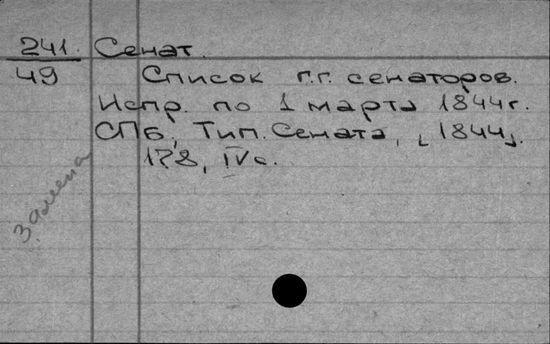 241. Сенат.
49 Список г.г. сенаторов.
Испр. по 1 марта 1844 г.
СПб, Тип. Сената, [1844].
178, IV с.
Замена